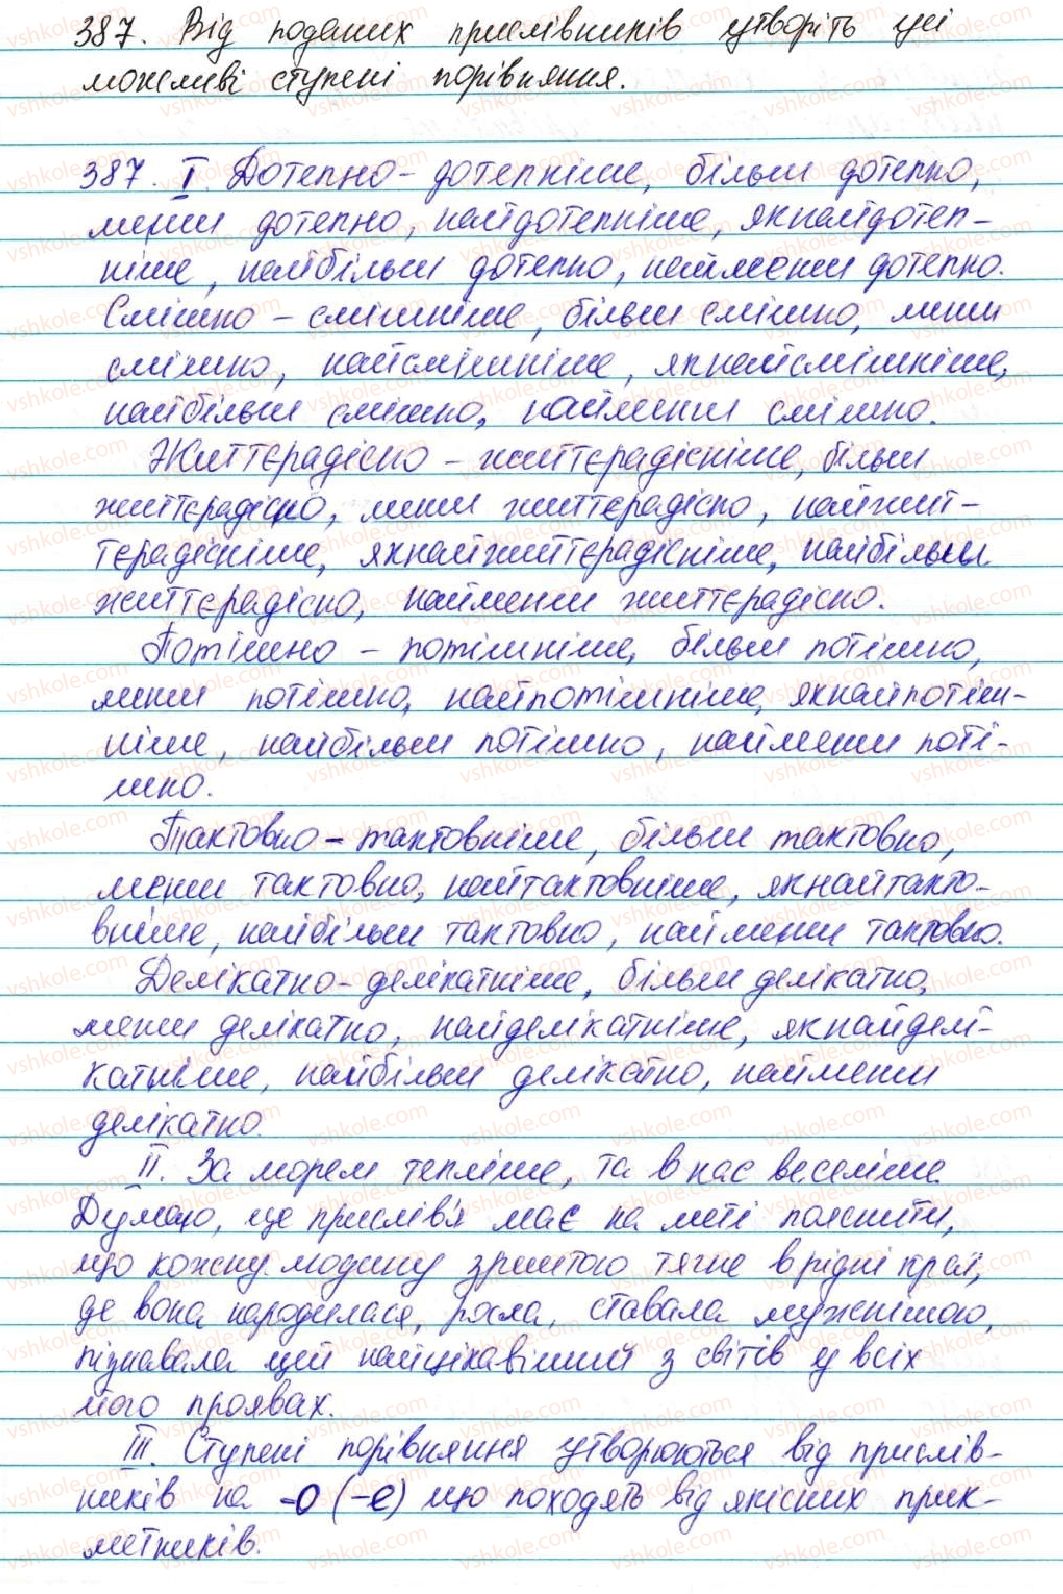 387. Від поданих прислівників утворіть усі
можливі ступені порівняння.
387. I. Дотепно – дотепніше, більш дотепно,
менш дотепно, найдотепніше, якнайдотеп-
ніше, найбільш дотепно, найменш дотепно.
Смішно – смішніше, більш смішно, менш
смішно, найсмішніше, якнайсмішніше,
найбільш смішно, найменш смішно.
Життєрадісно – життєрадісніше, більш
життєрадісно, менш життєрадісно, найжит-
тєрадісніше, якнайжиттєрадісніше, найбільш
життєрадісно, найменш життєрадісно.
Потішно – потішніше, більш потішно,
менш потішно, найпотішніше, якнайпотіш-
ніше, найбільш потішно, найменш поті-
шно.
Тактовно – тактовніше, більш тактовно,
менш тактовно, найтактовніше, якнайтакто-
вніше, найбільш тактовно, найменш тактовно.
Делікатно – делікатніше, більш делікатно,
менш делікатно, найделікатніше, якнайделі-
катніше, найбільш делікатно, найменш
делікатно.
II. За морем тепліше, та в нас веселіше.
Думаю, це прислів'я має на меті пояснити,
що кожну людину зрештою тягне в рідні краї,
де вона народилася, росла, ставала мужнішою,
пізнавала цей найцікавіший з світів у всіх
його проявах.
III. Ступені порівняння утворюються від прислів-
ників на -о (-е) що походять від якісних прик-
метників.